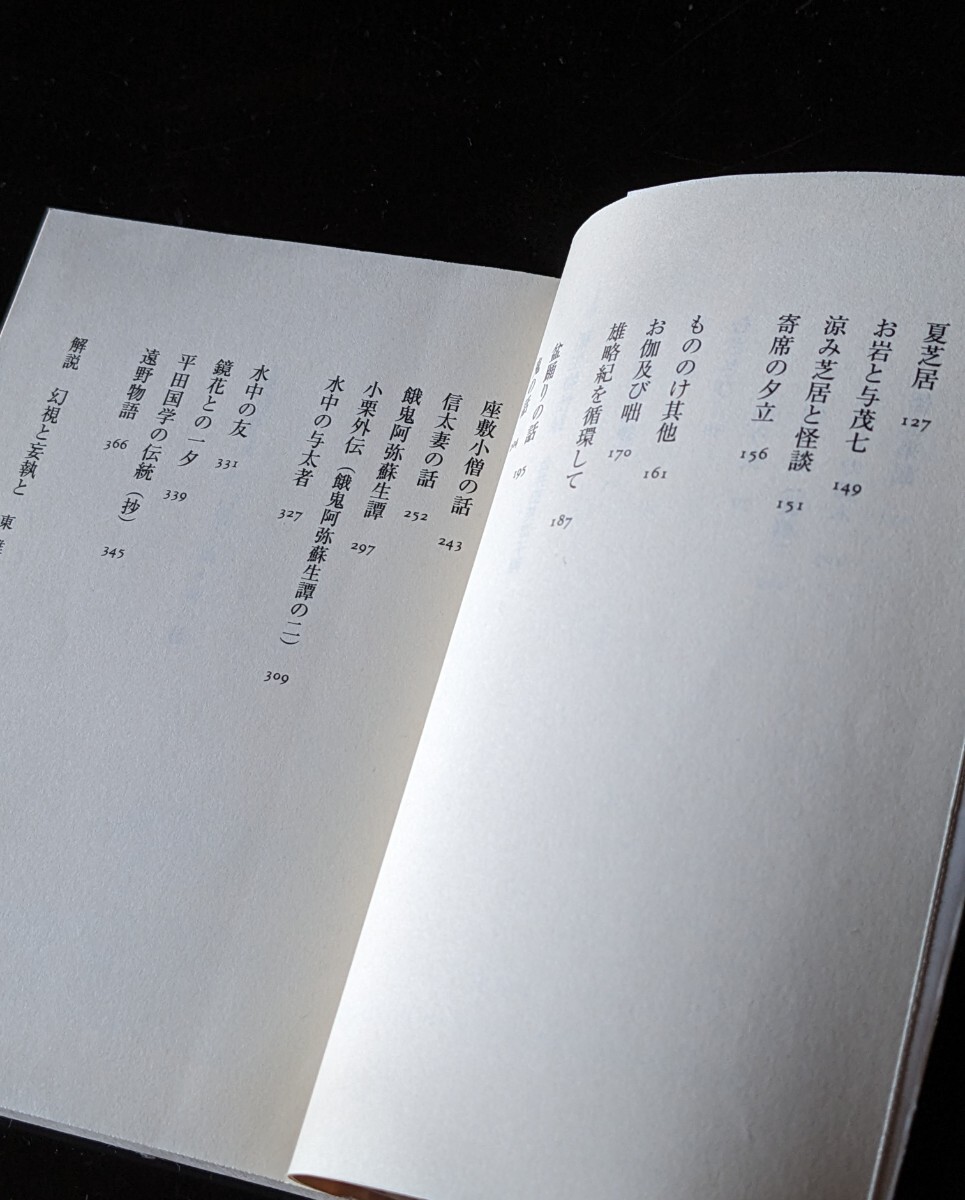 夏芝居 127
お岩と与茂七 149
涼み芝居と怪談 151
寄席の夕立 156
もののけ其他 161
お伽及び咄 170
雄略紀を循環して 187
盆踊りの話
の話 195
座敷小僧の話 243
信太妻の話 252
餓鬼阿弥蘇生譚 297
小栗外伝（餓鬼阿弥蘇生譚の二） 309
水中の与太者 327
水中の友 331
鏡花との一夕 339
平田国学の伝統（抄） 345
遠野物語 366
解説 幻視と妄執と 東